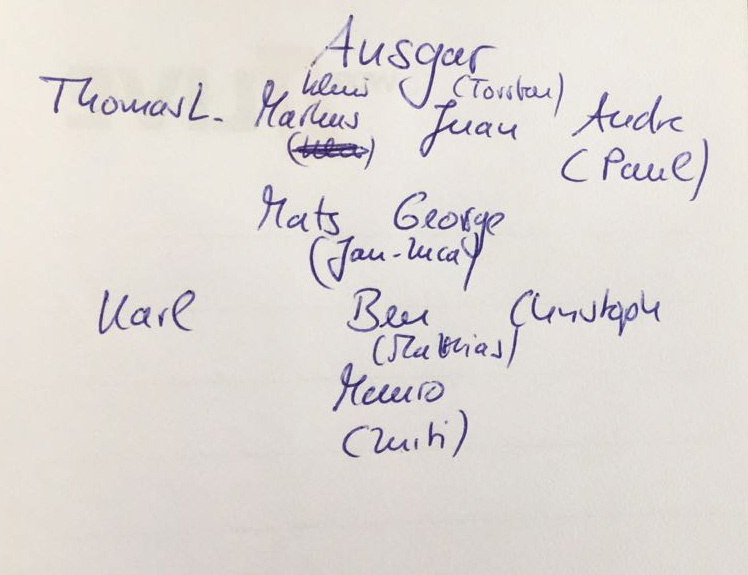 Ansgar
Thomas L. Markus (Torsten) Juan Andre
(Paul)
Mats George
(Jan-Luca)
Karl Ben Christoph
(Mathias)